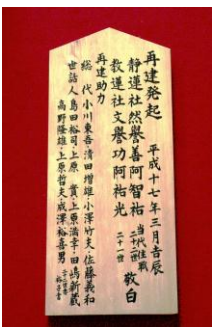 再建発起 平成十七年三月吉辰
静蓮社然譽善阿智祐 当代住職 二十二世
教蓮社文譽功阿祐光 二十一世 敬白
再建助力
総代 小川東吾・清田増雄・小澤竹夫・佐藤義和
世話人 島田裕司・上原 實・上原満幸・田嶋新蔵
高野隆雄・上原哲夫・成澤裕喜男